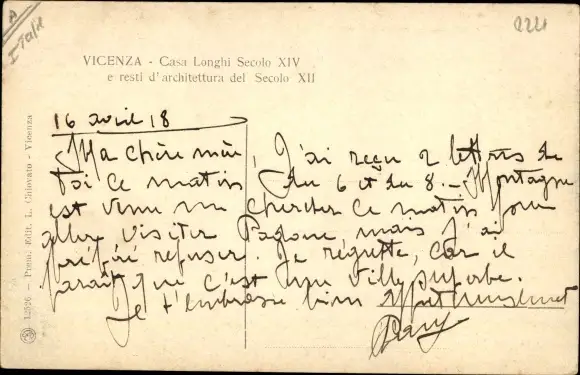 A
Italie
2221
VICENZA - Casa Longhi Secolo XIV
e resti d'architettura del Secolo XII
16 avril 18
Ma chère mère, J'ai reçu 2 lettres de
toi ce matin, du 6 et du 8. - Montagne
est venu me chercher ce matin pour
aller visiter Padoue mais j'ai
préféré refuser. Je regrette, car il
paraît que c'est une ville superbe.
Je t'embrasse bien
12526 - Prem. Edit. L. Chiovato - Vicenza